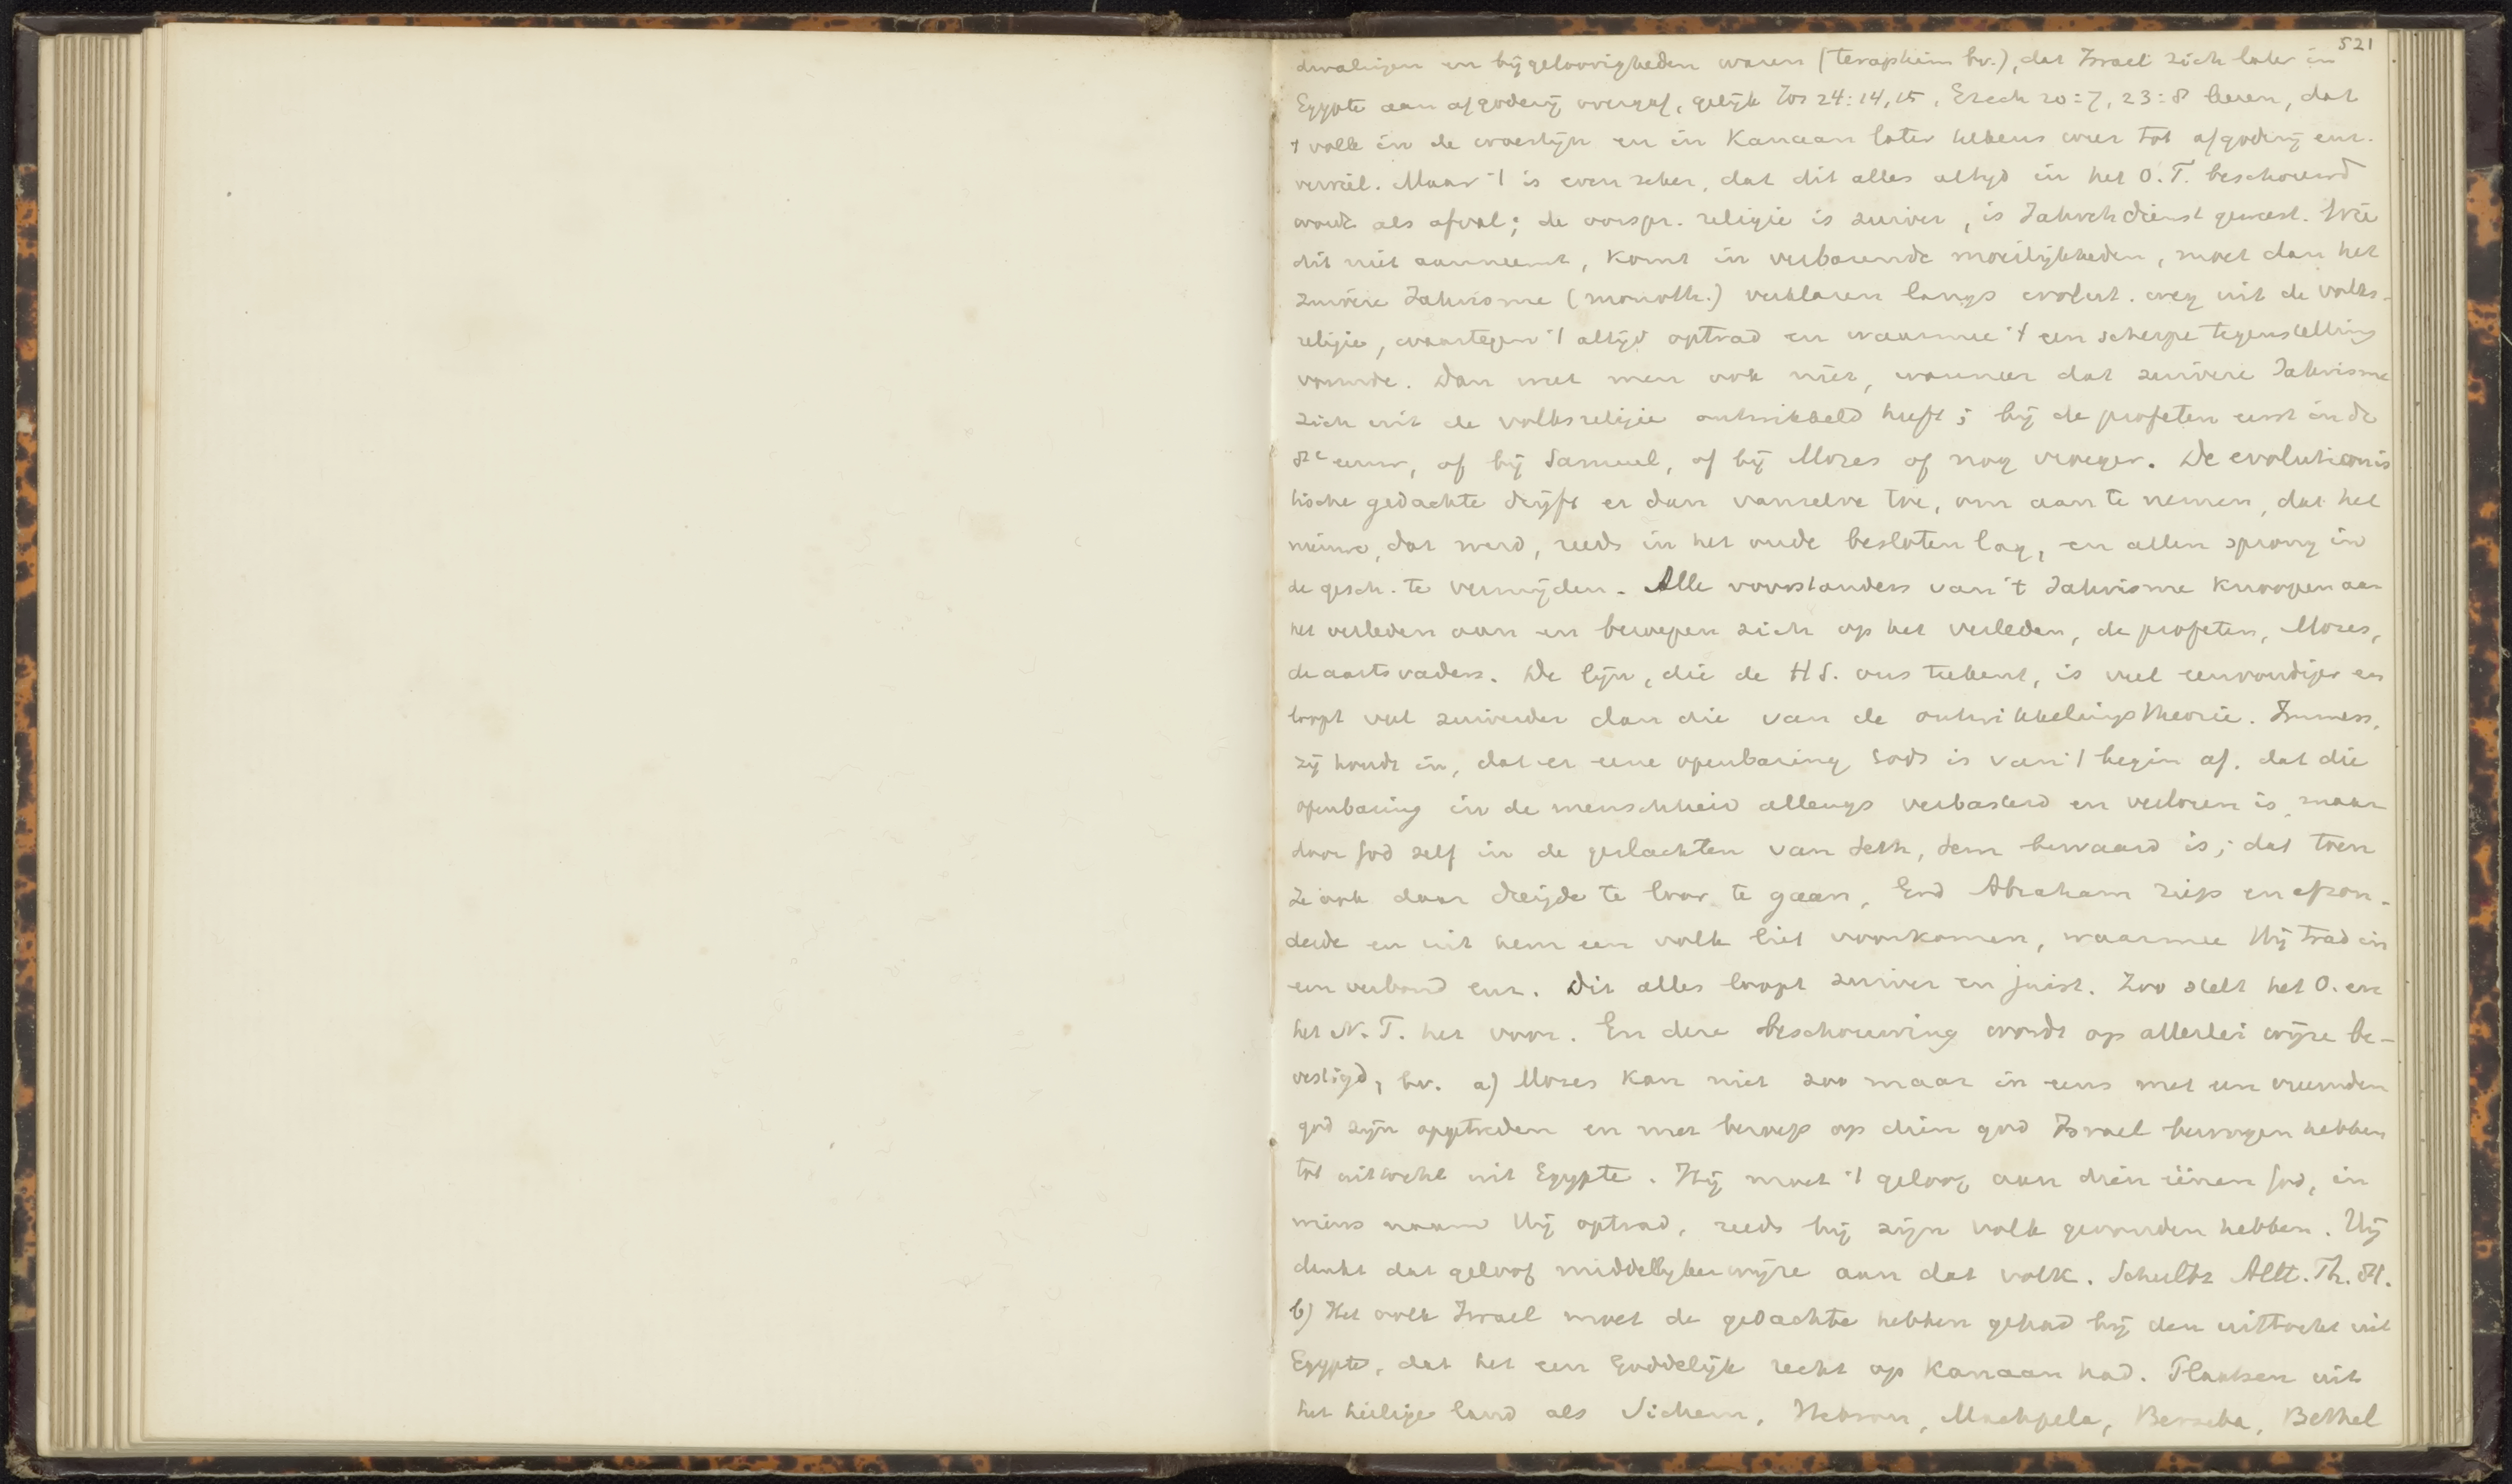 521
dwalingen en bijgeloovigheden waren (teraphim bv.), dat Israel zich later in
Egypte aan afgoderij overgaf, gelijk Jos 24:14, 15, Ezech 20:7, 23:8 leeren, dat
't volk in de woestijn en in Kanaan later telkens weer tot afgoderij enz.
verviel. Maar 't is even zeker, dat dit alles altijd in het O.T. beschouwd
wordt als afval; de oorspr. religie is zuiver, is Jahvehdienst geweest. Wie
dit niet aanneemt, komt in verbazende moeilijkheden, moet dan het
zuivere Jahvisme (monoth.) verklaren langs evolut. weg uit de volks-
religie, waartegen 't altijd optrad en waarmee 't een scherpe tegenstelling
vormde. Dan weet men ook niet, wanneer dat zuivere Jahvisme
zich uit de volksreligie ontwikkeld heeft; bij de profeten eerst in de
8e eeuw, of bij Samuel, of bij Mozes of nog vroeger. De evolutionis
tische gedachte drijft er dan vanzelve toe, om aan te nemen, dat het
nieuwe, dat werd, reeds in het oude besloten lag, en allen sprong in
de gesch. te vermijden. Alle voorstanders van 't Jahvisme knoopen aan
het verleden aan en beroepen zich op het verleden, de profeten, Mozes,
de aartsvaders. De lijn, die de HS. ons teekent, is veel eenvoudiger en
loopt veel zuiverder dan die van de ontwikkelingstheorie. Immers,
zij houdt in, dat er eene openbaring Gods is van 't begin af. dat die
openbaring in de menschheid allengs verbasterd en verloren is, maar
door God zelf in de geslachten van Seth, Sem bewaard is; dat toen
ze ook daar dreigde te loor te gaan, God Abraham riep en afzon-
derde en uit hem een volk liet voorkomen, waarmee Hij trad in
een verbond enz. Dit alles loopt zuiver en juist. Zoo stelt het O. en
het N. T. het voor. En deze beschouwing wordt op allerlei wijze be-
vestigd, bv. a) Mozes kan niet zoo maar in eens met een vreemden
god zijn opgetreden en met beroep op dien god Israel bewogen hebben
tot uittocht uit Egypte. Hij moet 't geloof aan dien éénen God, in
wiens naam Hij optrad, reeds bij zijn volk gevonden hebben. Hij
dankt dat geloof middellijkerwijze aan dat volk. Schultz Altt. Th. 81.
b) Het volk Israel moet de gedachte hebben gehad bij den uittocht uit
Egypte, dat het een Goddelijk recht op Kanaan had. Plaatsen uit
het heilige land als Sichem, Hebron, Machpela, Berseba, Bethel